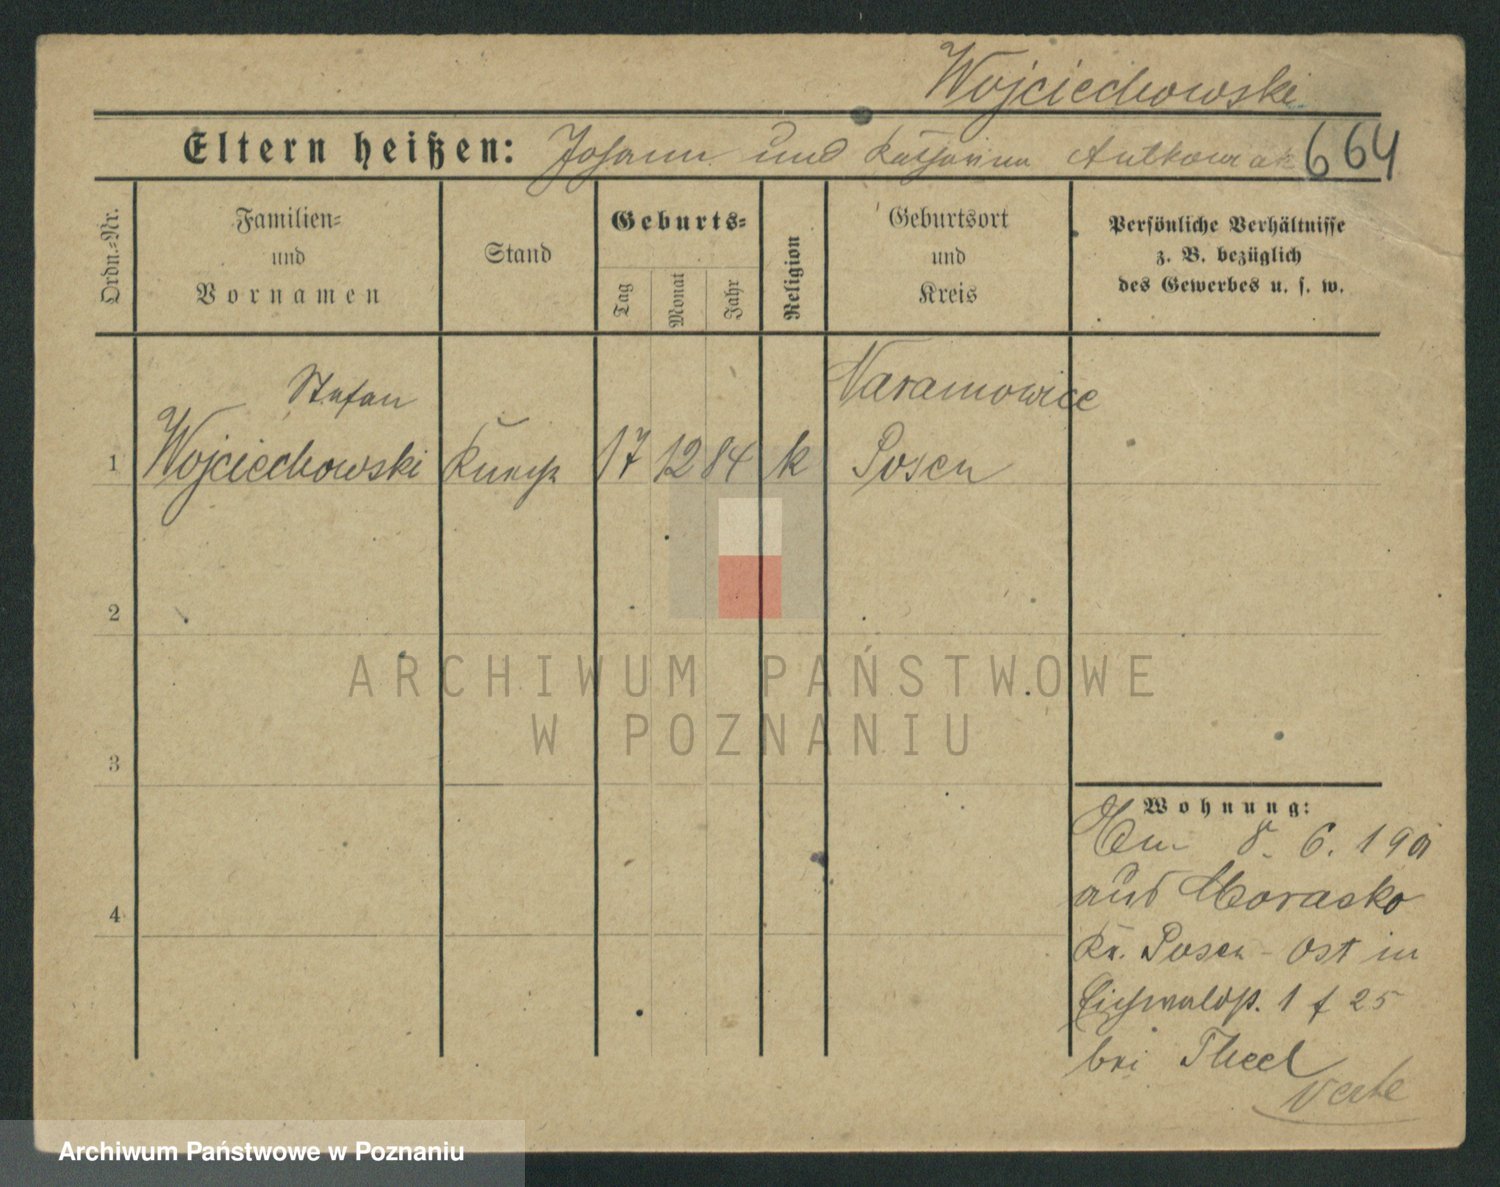 Wojciechowski
Eltern heißen: Johann und Katharina Antkowiak 664
Ordn.-Nr.
Familien- und Vornamen
Stand
Geburts-
Tag
Monat
Jahr
Religion
Geburtsort und Kreis
Persönliche Verhältnisse
z. B. bezüglich
des Gewerbes u. s. w.
Stefan
Naramowice
1 Wojciechowski 17 12 84 k Posen
2
ARCHIWUM PAŃSTWOWE
W POZNANIU
3
Wohnung:
8. 6.
aus Morasko
Kr. Posen-Ost in
Eichwaldstr. 1 f 25
bei Theel
verte
4
Archiwum Państwowe w Poznaniu